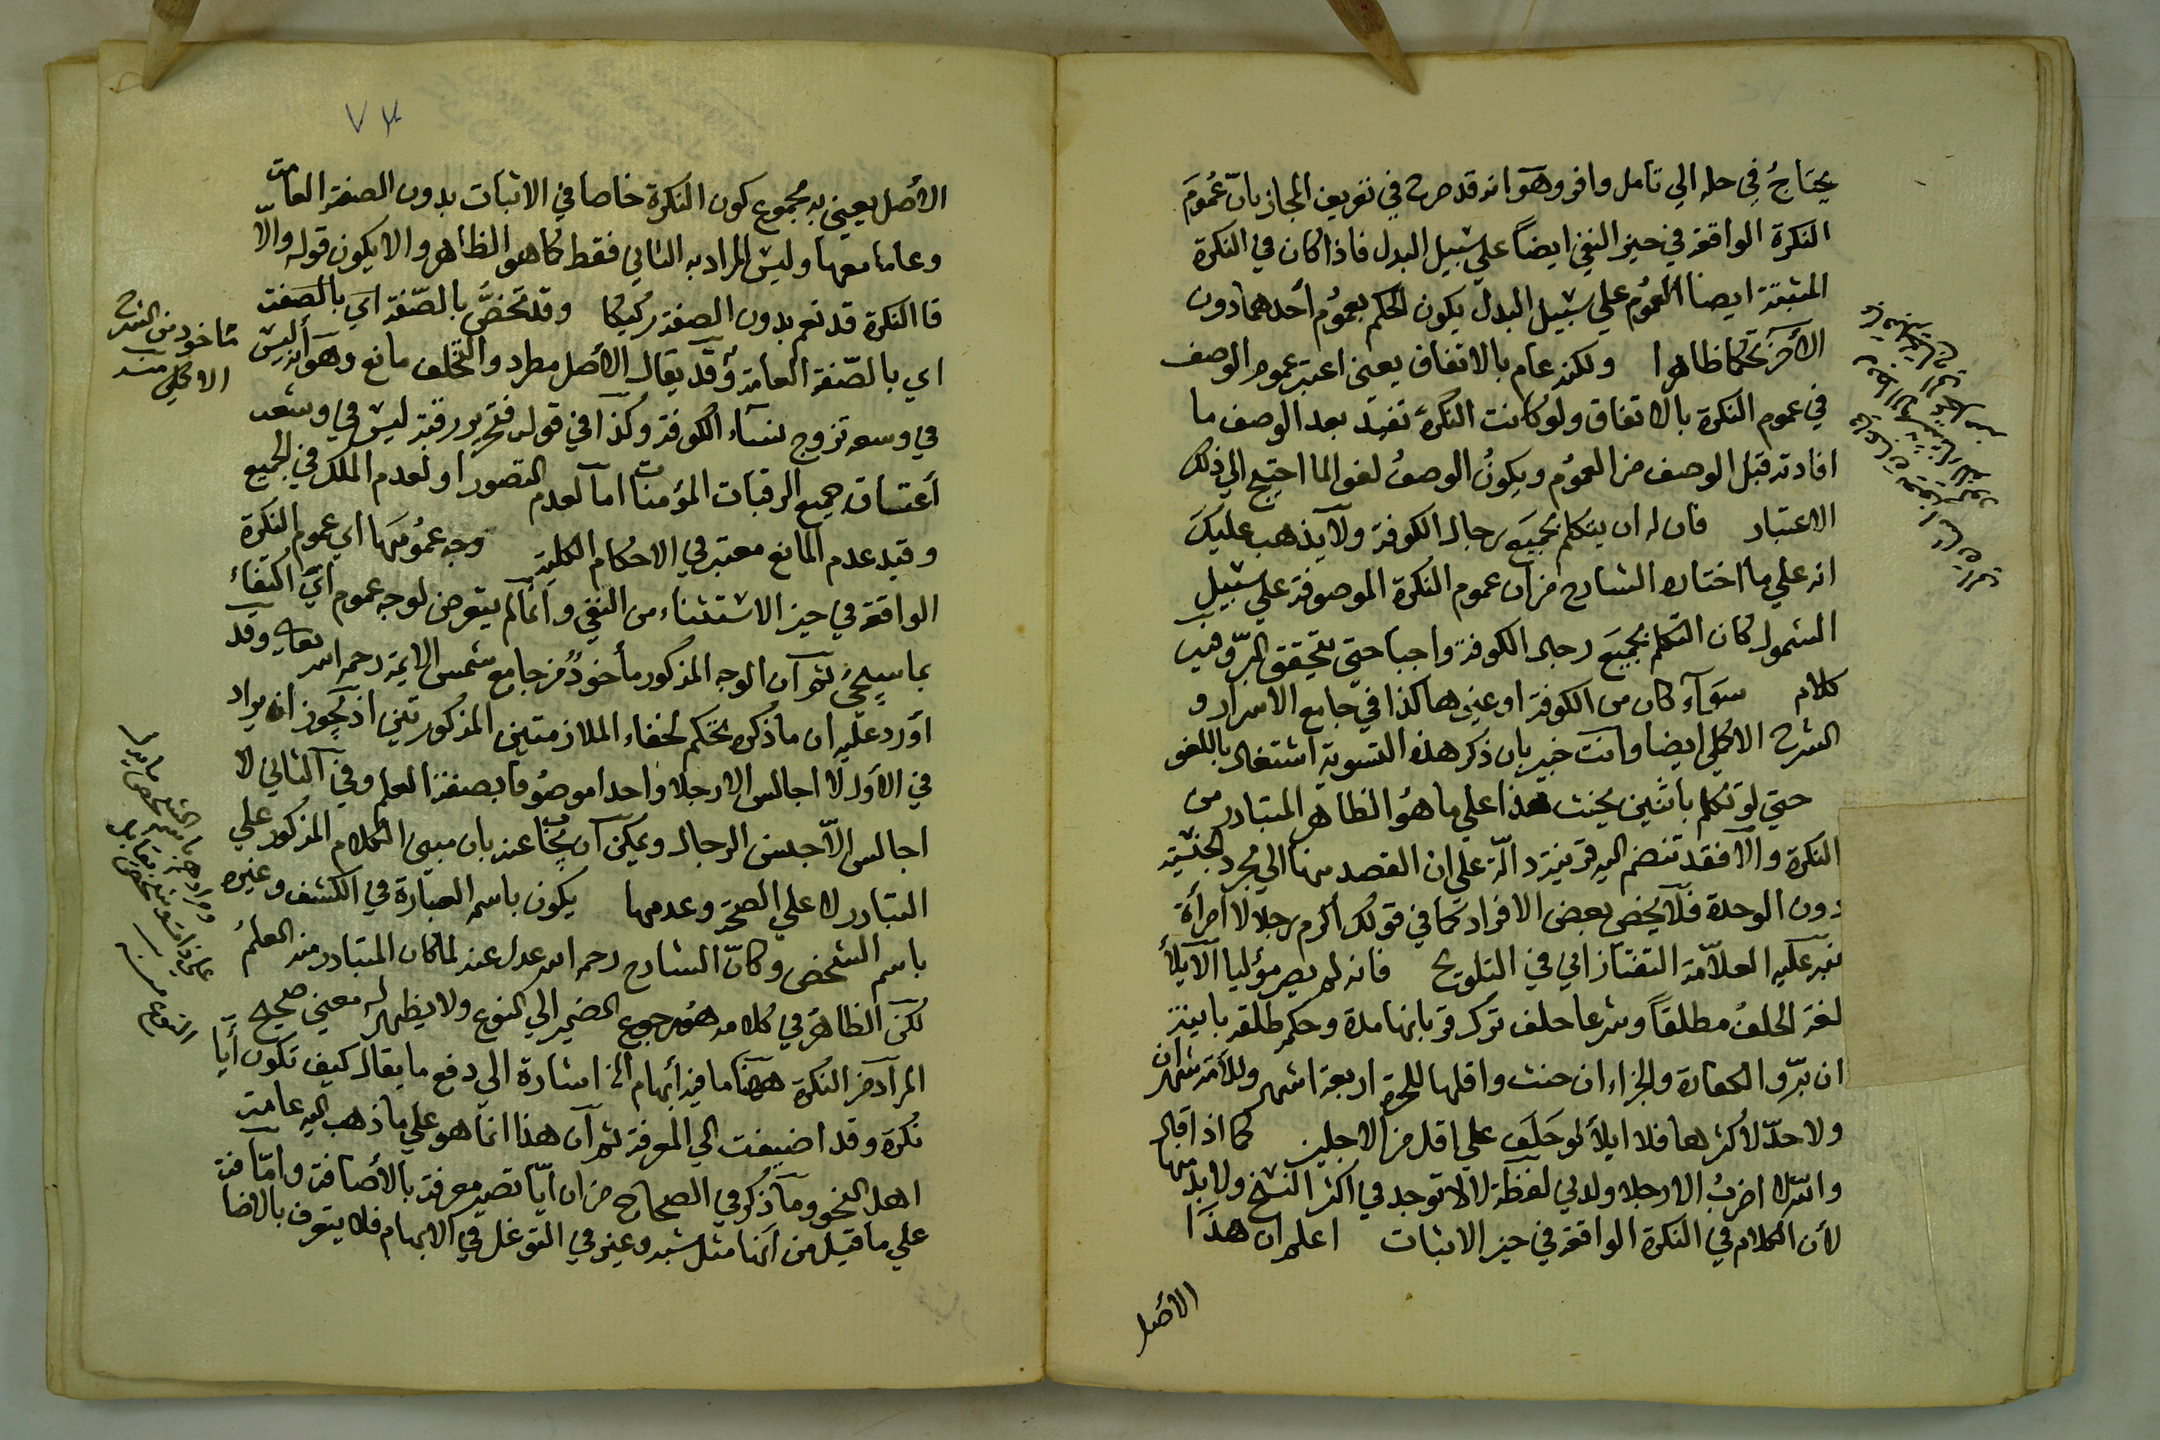 يحتاجُ في حله الي تامل وافر وهو انه قد صرح في تعريف المجاز بانّ عُمومَ
النكرة الواقعة في حيز النفي ايضاً علي سبيل البدل فاذا كان في النكرة
المثبتة ايضا العموم علي سبيل البدل يكون الحكم بعموُم أحدهما دون
الآخر تحكما ظاهرا ولكنه عام بالاتفاق يعنى اعتبر عموم الوصف
في عموم النكرة بالاتفاق ولو كانت النكرة تفيد بعد الوصف ما
افادته قبل الوصف من العموُم ويكونُ الوصفُ لغوا لما احتيج الي ذلك
الاعتبار فان له ان يتكلم بجميَع رجال الكوفة ولا يذهب عليكَ
انه علي ما اختاره الشارح من ان عموم النكرة الموصوفة علي سبيل
الشمول كان التكلم بجميَع رجال الكوفة واجبا حتي يتحقق البرّ وفيه
كلام سوآء كان من الكوفة او غيرها كذا في جامع الاسرار و
الشرح الاكملي ايضا وانت خبير بان ذكر هذه التسوية اشتغال باللغو
حتي لو تكلم باثنين يحنث هذا علي ما هُو الظاهر المتبادر من
النكرة والّا فقد تنضم اليه قرينة دالّة علي ان القصد منها الي مجرد الجنسية
دون الوحدة فلا يخص بعض الافراد كما في قولك اكرم رجلا لا امرأة
نبّه عليه العلاّمة التفتازاني في التلويح فانه لم يصر مؤليا الايلأ
لغة الحلفُ مطلقاً وشرعا حلف ترك قربانها مدة وحكمه طلقة باينة
ان برّ والكفارة والجزاء ان حنث واقلها للحرة اربعة اشهر وللأمة شهران
ولا حدّ لاكثرها فلا ايلأ لو حَلَف علي اقل من الاجلين كما اذا قال
والله لا اضربُ الا رجلا ولدني لفظة لا لا توجد في اكثر النسخ ولا بد منها
لأن الكلام في النكرة الواقعة في حيز الاثبات اعلم ان هذا
الأصل
٧٣
الأصل يعني به مجموع كون النكرة خاصا في الاثبات بدون الصفة العامة
وعاما معها وليس المراد به الثاني فقط كما هو الظاهر والا يكون قوله والّا
فالنكرة قد تعم بدون الصفة ركيكا وقد تخصُّ بالصّفة اي بالصّفة
اي بالصّفة العامة وقد يقال الأصل مطرد والتخلف مانع وهو انه ليس
في وسعه تزوج نسآء الكوفة وكذا في قوله فتحرير رقبة ليس في وسعه
أعتاق جميع الرقبات المؤمنات اما لعدم التصور او لعدم الملك في الجميع
وقيد عدم المانع معتبر في الاحكام الكلية وجه عموُمها اي عموم النكرة
الواقعة في حيز الاستثناء من النفي وانما لم يتعرض لوجه عموم أيّ اكتفاء
بما سيجيُ ثم ان الوجه المذكور مأخوذُ من جامع شمس الايمة رحمه الله تعالي وقد
أورد عليه ان ما ذكره تحكم لخفاء الملازمتين المذكورتين اذ يجوز ان يراد
في الأول لا اجالس الا رجلا واحدا موصوُفا بصفة العلم وفي الثاني لا
اجالس الّا جنس الرجال ويمكن ان يُجاب عنه بان مبنى الكلام المذكور علي
التبادر لا علي الصحة وعدمها يكون باسمه العبارة في الكشف وغيره
باسم الشخص وكانّ الشارح رحمه الله عدل عنه لما كان المتبادر منه العلمُ
لكن الظاهرُ في كلامه هُو رجوع الضمير الي النوع ولا يظهر له معني صحيح
المراد من النكرة ههنا ما فيه ابهام الخ اشارة الى دفع ما يقال كيف تكون أيّا
نكرة وقد اضيفت الي المعرفة ثم ان هذا انّما هو علي ما ذهب اليه عامة
اهل النحو وما ذكر في الصحاح من ان ايّا تصير معرفة بالأضافة وامّا
علي ما قيل من انها مثل شبه وغير في التوغل في الابهام فلا يتعرف بالاضافة
مأخوذ من الشرح
الاكملي منه